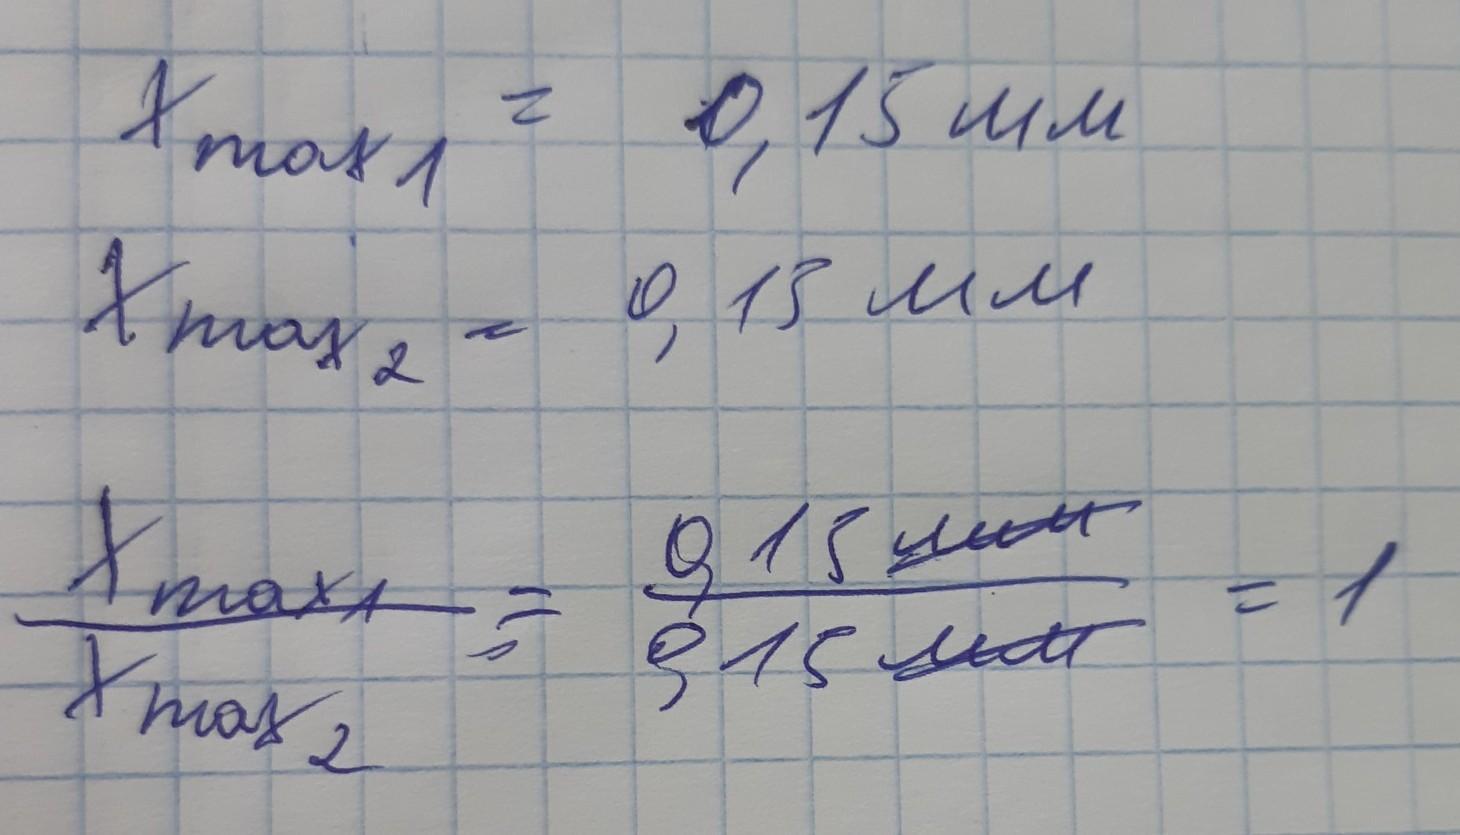 Xmax1 = 0,15 мм
Xmax2 = 0,15 мм
Xmax1 / Xmax2 = 0,15 мм / 0,15 мм = 1